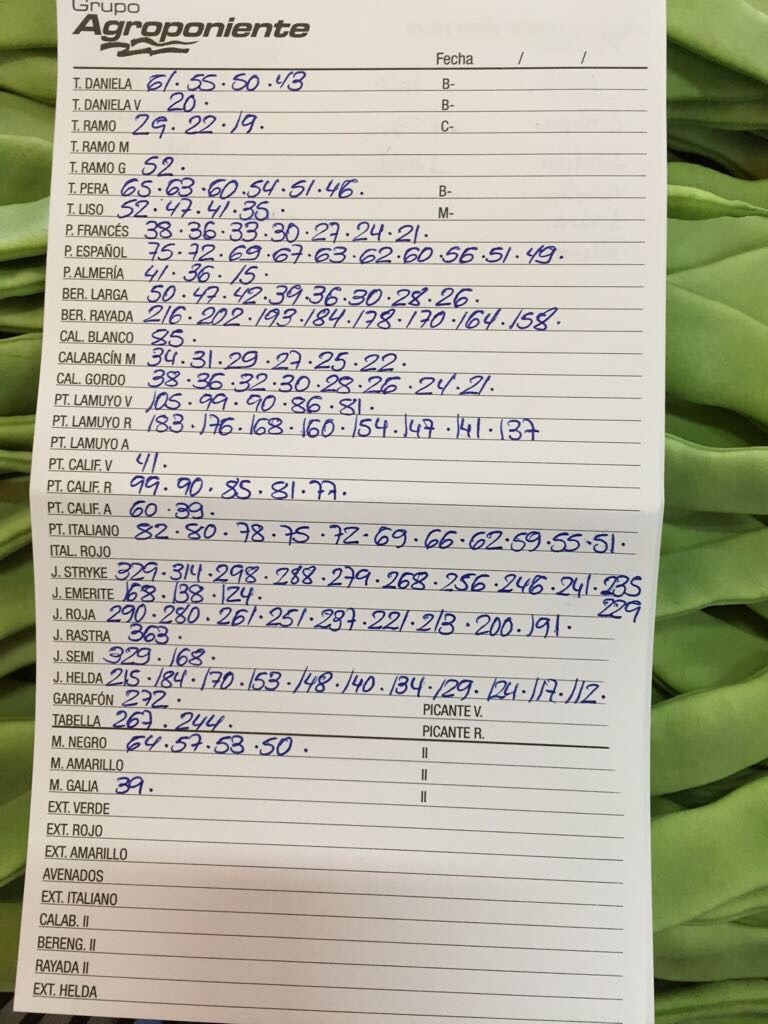 Grupo
Agroponiente
Fecha / /
T. DANIELA 61. 55. 50. 43 B-
T. DANIELA V 20. B-
T. RAMO 29. 22. 19. C-
T. RAMO M
T. RAMO G 52.
T. PERA 65.63.60.54.51.46. B-
T. LISO 52.47.41.35. M-
P. FRANCÉS 38.36.33.30.27.24.21.
P. ESPAÑOL 75.72.69.67.63.62.60.56.51.49.
P. ALMERÍA 41.36.15.
BER. LARGA 50.47.42.39.36.30.28.26.
BER. RAYADA 216.202.193.184.178.170.164.158.
CAL. BLANCO 85.
CALABACÍN M 34.31.29.27.25.22.
CAL. GORDO 38.36.32.30.28.26.24.21.
PT. LAMUYO V 105.99.90.86.81.
PT. LAMUYO R 183.176.168.160.154.147.141.137
PT. LAMUYO A
PT. CALIF. V 41.
PT. CALIF. R 99.90.85.81.77.
PT. CALIF. A 60.39.
PT. ITALIANO 82.80.78.75.72.69.66.62.59.55.51.
ITAL. ROJO
J. STRYKE 329.314.298.288.279.268.256.246.241.235
229
J. EMERITE 168.138.124.
J. ROJA 290.280.261.251.237.221.213.200.191.
J. RASTRA 363.
J. SEMI 329.168.
J. HELDA 215.184.170.153.148.140.134.129.124.117.112.
GARRAFÓN 272. PICANTE V.
TABELLA 267.244. PICANTE R.
M. NEGRO 64.57.53.50. II
M. AMARILLO II
M. GALIA 39. II
EXT. VERDE
EXT. ROJO
EXT. AMARILLO
AVENADOS
EXT. ITALIANO
CALAB. II
BERENG. II
RAYADA II
EXT. HELDA